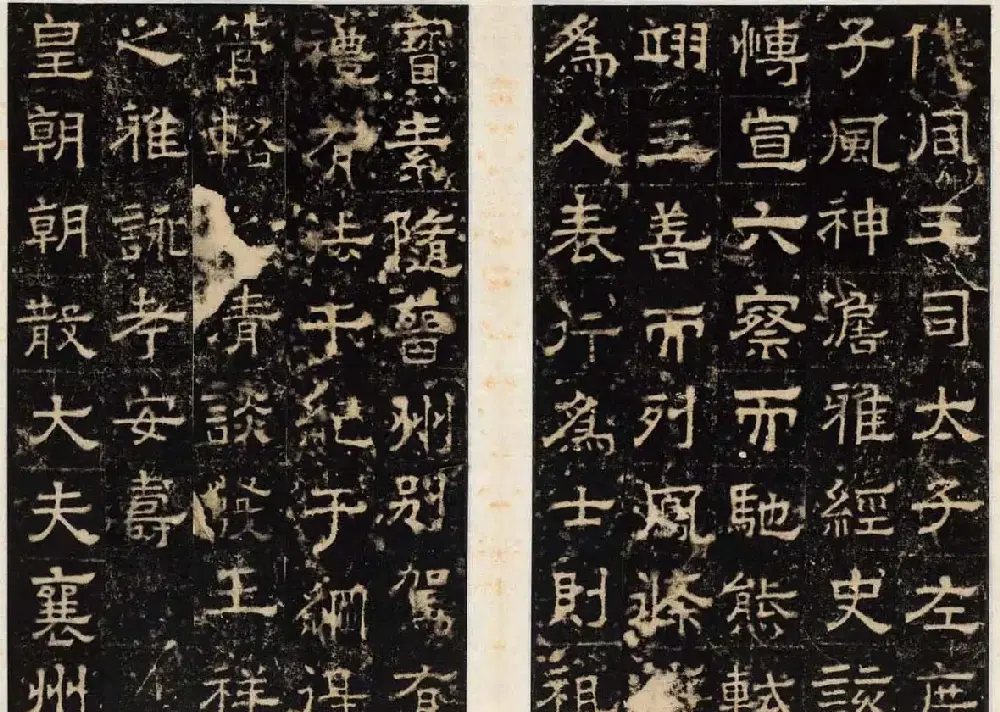 周王司太子左庶
子風神澹雅經史該
愽宣六察而馳態軾
翊五善而列鳳
為人表行為士則祖
寶素隨晉州別駕有
禮有法于紀于綱得
管輅清談發王祥
之雅詠孝安壽
皇朝朝散大夫襄州